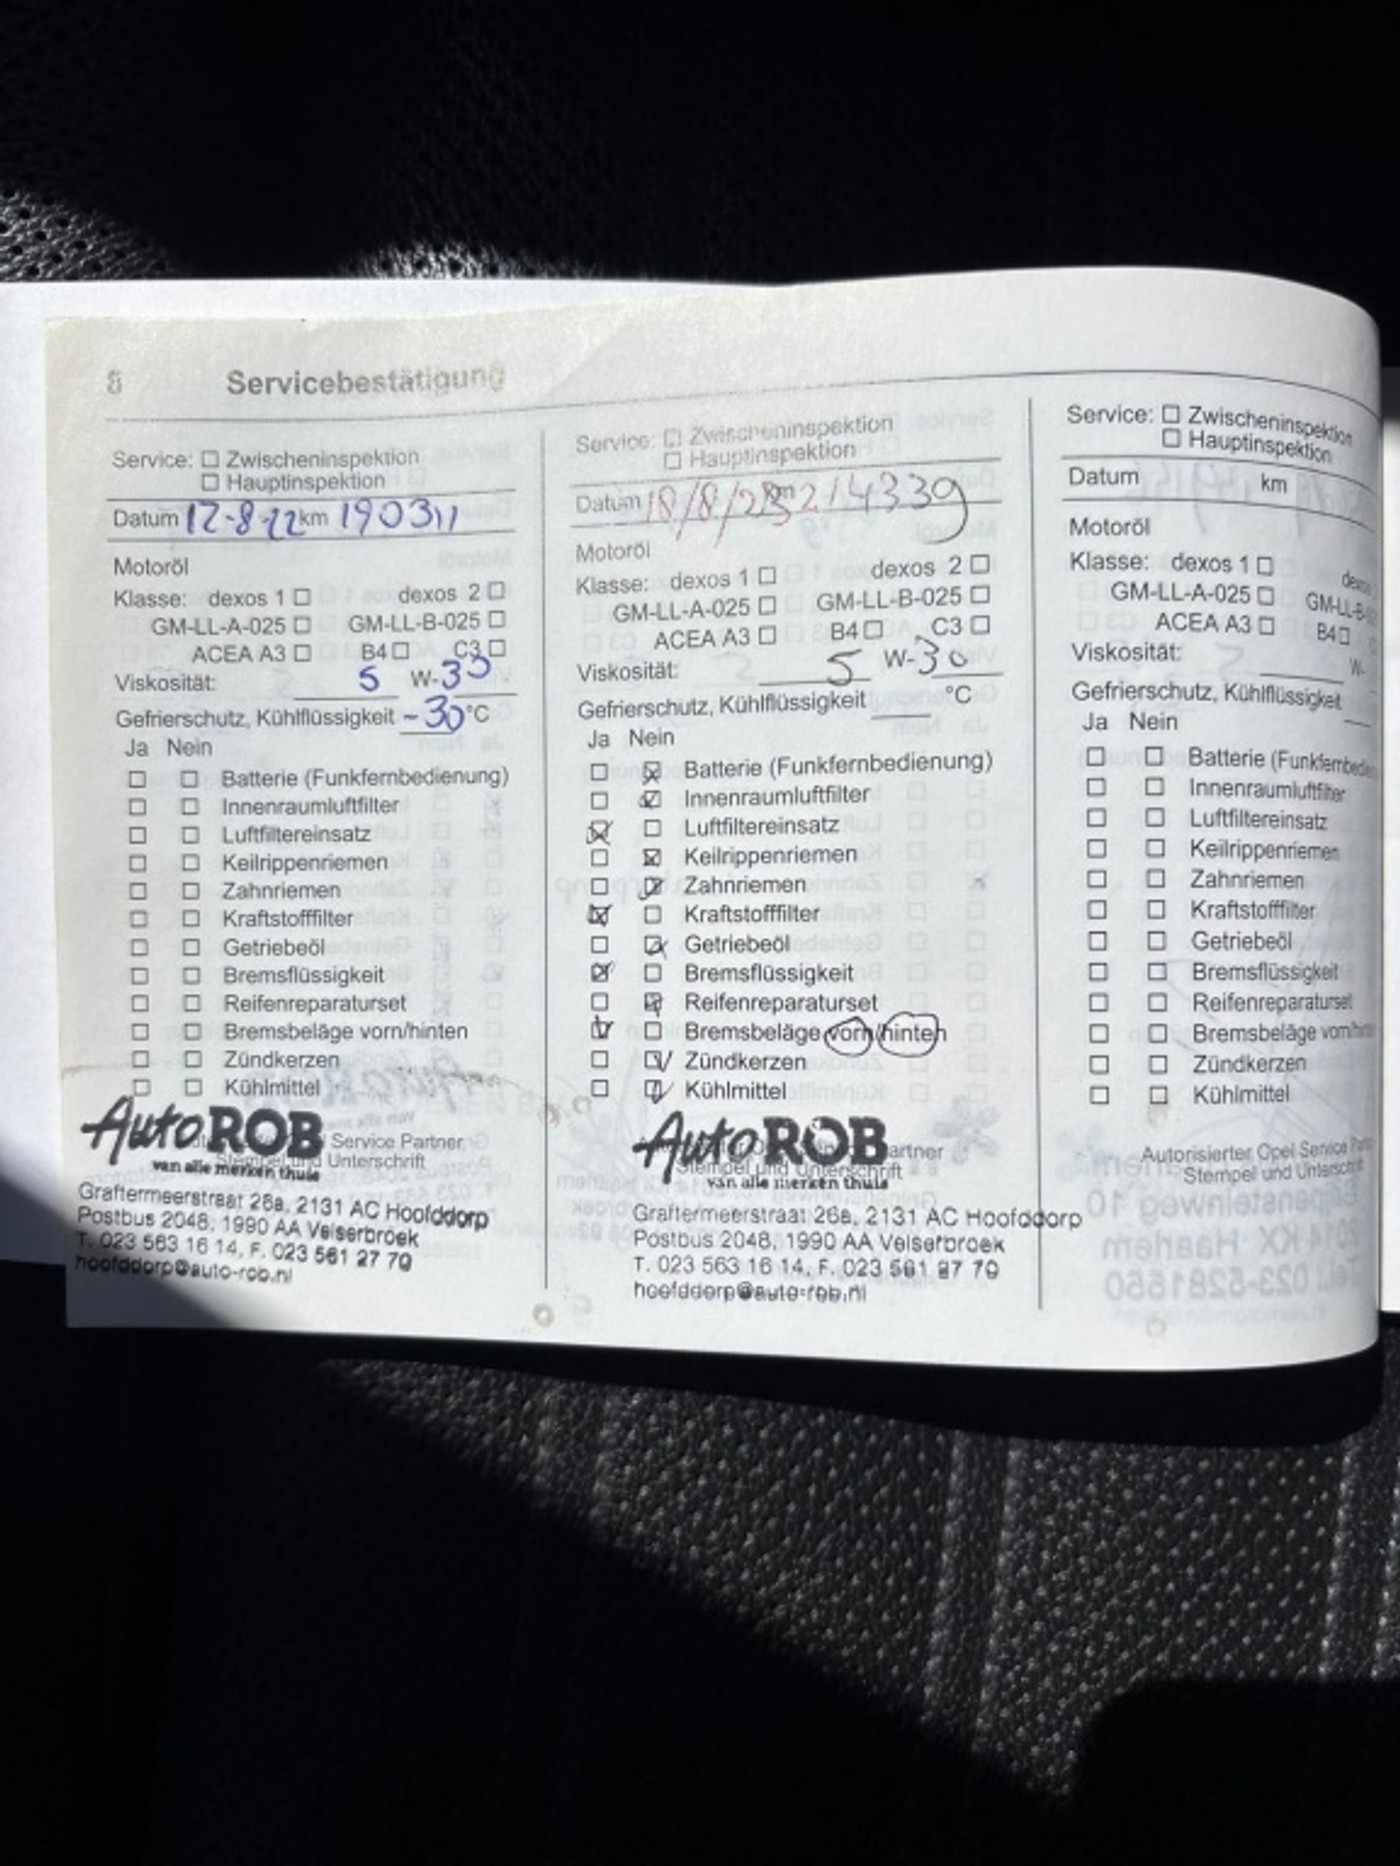 8 Servicebestätigung
Service: ☐ Zwischeninspektion
☐ Hauptinspektion
Datum 12-8-22 km 190311
Motoröl
Klasse: dexos 1 ☐ dexos 2 ☐
GM-LL-A-025 ☐ GM-LL-B-025 ☐
ACEA A3 ☐ B4 ☐ C3 ☐
Viskosität: 5 W-33
Gefrierschutz, Kühlflüssigkeit -30 °C
Ja Nein
☐ ☐ Batterie (Funkfernbedienung)
☐ ☐ Innenraumluftfilter
☐ ☐ Luftfiltereinsatz
☐ ☐ Keilrippenriemen
☐ ☐ Zahnriemen
☐ ☐ Kraftstofffilter
☐ ☐ Getriebeöl
☐ ☐ Bremsflüssigkeit
☐ ☐ Reifenreparaturset
☐ ☐ Bremsbeläge vorn/hinten
☐ ☐ Zündkerzen
☐ ☐ Kühlmittel
Auto ROB
Service Partner
Stempel und Unterschrift
van alle merken thuis
Graftermeerstraat 26a, 2131 AC Hoofddorp
Postbus 2048, 1990 AA Velserbroek
T. 023 563 16 14, F. 023 561 27 79
hoofddorp@auto-rob.nl
Service: ☐ Zwischeninspektion
☐ Hauptinspektion
Datum 18/8/23 km 214339
Motoröl
Klasse: dexos 1 ☐ dexos 2 ☐
GM-LL-A-025 ☐ GM-LL-B-025 ☐
ACEA A3 ☐ B4 ☐ C3 ☐
Viskosität: 5 W-30
Gefrierschutz, Kühlflüssigkeit °C
Ja Nein
☐ ☒ Batterie (Funkfernbedienung)
☐ ☒ Innenraumluftfilter
☒ ☐ Luftfiltereinsatz
☐ ☒ Keilrippenriemen
☐ ☒ Zahnriemen
☒ ☐ Kraftstofffilter
☐ ☒ Getriebeöl
☒ ☐ Bremsflüssigkeit
☐ ☒ Reifenreparaturset
☒ ☐ Bremsbeläge vorn/hinten
☐ ☒ Zündkerzen
☐ ☒ Kühlmittel
Auto ROB
Partner
Stempel und Unterschrift
van alle merken thuis
Graftermeerstraat 26a, 2131 AC Hoofddorp
Postbus 2048, 1990 AA Velserbroek
T. 023 563 16 14, F. 023 561 27 79
hoofddorp@auto-rob.nl
Service: ☐ Zwischeninspektion
☐ Hauptinspektion
Datum km
Motoröl
Klasse: dexos 1 ☐ dexos
GM-LL-A-025 ☐ GM-LL-B-
ACEA A3 ☐ B4 ☐
Viskosität: W-
Gefrierschutz, Kühlflüssigkeit
Ja Nein
☐ ☐ Batterie (Funkfernbedie
☐ ☐ Innenraumluftfilter
☐ ☐ Luftfiltereinsatz
☐ ☐ Keilrippenriemen
☐ ☐ Zahnriemen
☐ ☐ Kraftstofffilter
☐ ☐ Getriebeöl
☐ ☐ Bremsflüssigkeit
☐ ☐ Reifenreparaturset
☐ ☐ Bremsbeläge vorn/hinten
☐ ☐ Zündkerzen
☐ ☐ Kühlmittel
Autorisierter Opel Service Partner
Stempel und Unterschrift